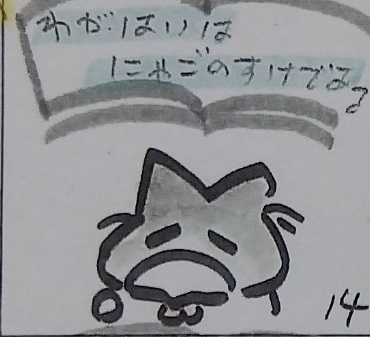 わがはいは
にゃごのすけである
14